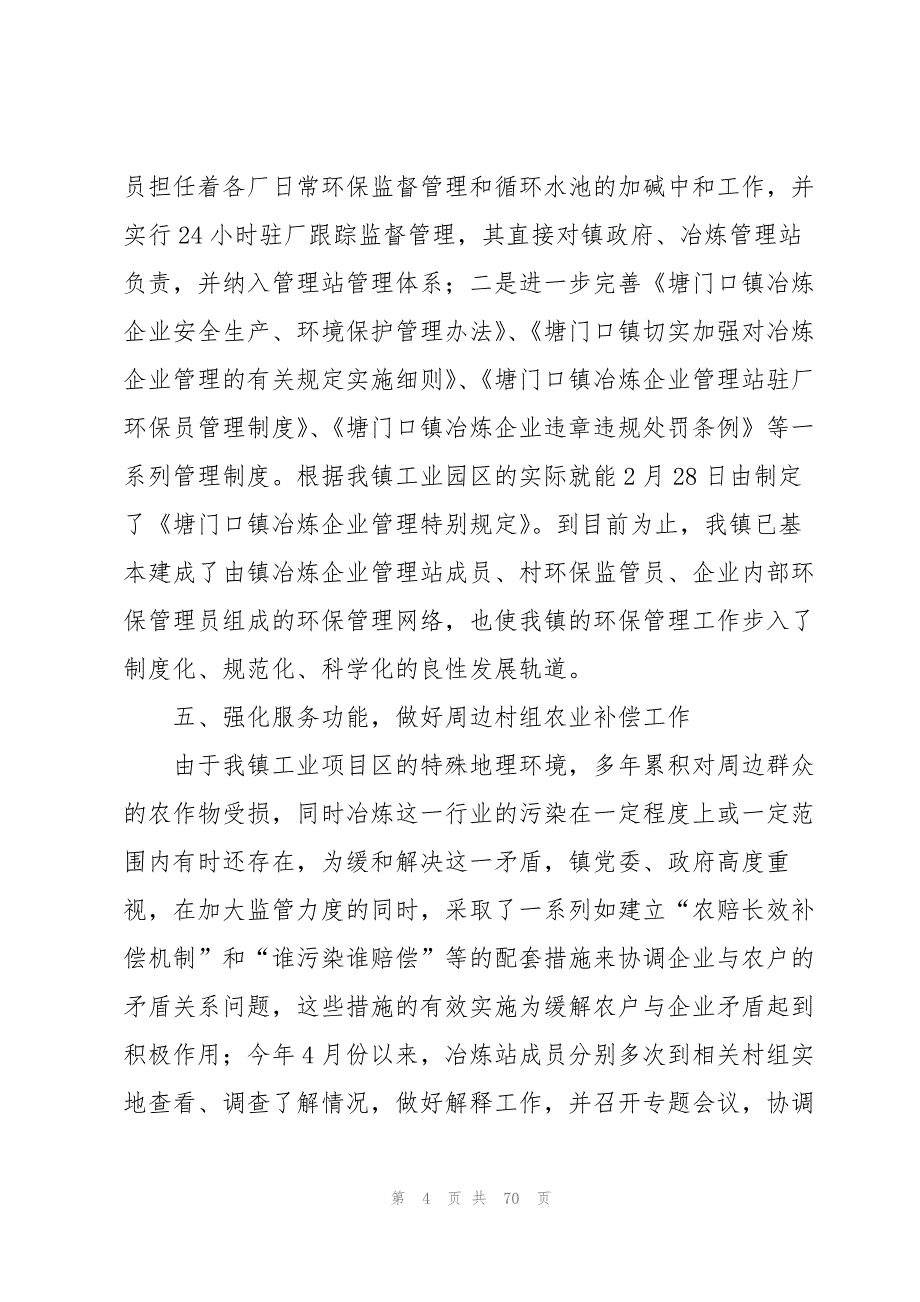 员担任着各厂日常环保监督管理和循环水池的加碱中和工作，并
实行 24 小时驻厂跟踪监督管理，其直接对镇政府、冶炼管理站
负责，并纳入管理站管理体系；二是进一步完善《塘门口镇冶炼
企业安全生产、环境保护管理办法》、《塘门口镇切实加强对冶炼
企业管理的有关规定实施细则》、《塘门口镇冶炼企业管理站驻厂
环保员管理制度》、《塘门口镇冶炼企业违章违规处罚条例》等一
系列管理制度。根据我镇工业园区的实际就能 2 月 28 日由制定
了《塘门口镇冶炼企业管理特别规定》。到目前为止，我镇已基
本建成了由镇冶炼企业管理站成员、村环保监管员、企业内部环
保管理员组成的环保管理网络，也使我镇的环保管理工作步入了
制度化、规范化、科学化的良性发展轨道。
五、强化服务功能，做好周边村组农业补偿工作
由于我镇工业项目区的特殊地理环境，多年累积对周边群众
的农作物受损，同时冶炼这一行业的污染在一定程度上或一定范
围内有时还存在，为缓和解决这一矛盾，镇党委、政府高度重
视，在加大监管力度的同时，采取了一系列如建立“农赔长效补
偿机制”和“谁污染谁赔偿”等的配套措施来协调企业与农户的
矛盾关系问题，这些措施的有效实施为缓解农户与企业矛盾起到
积极作用；今年 4 月份以来，冶炼站成员分别多次到相关村组实
地查看、调查了解情况，做好解释工作，并召开专题会议，协调
第 4 页 共 70 页